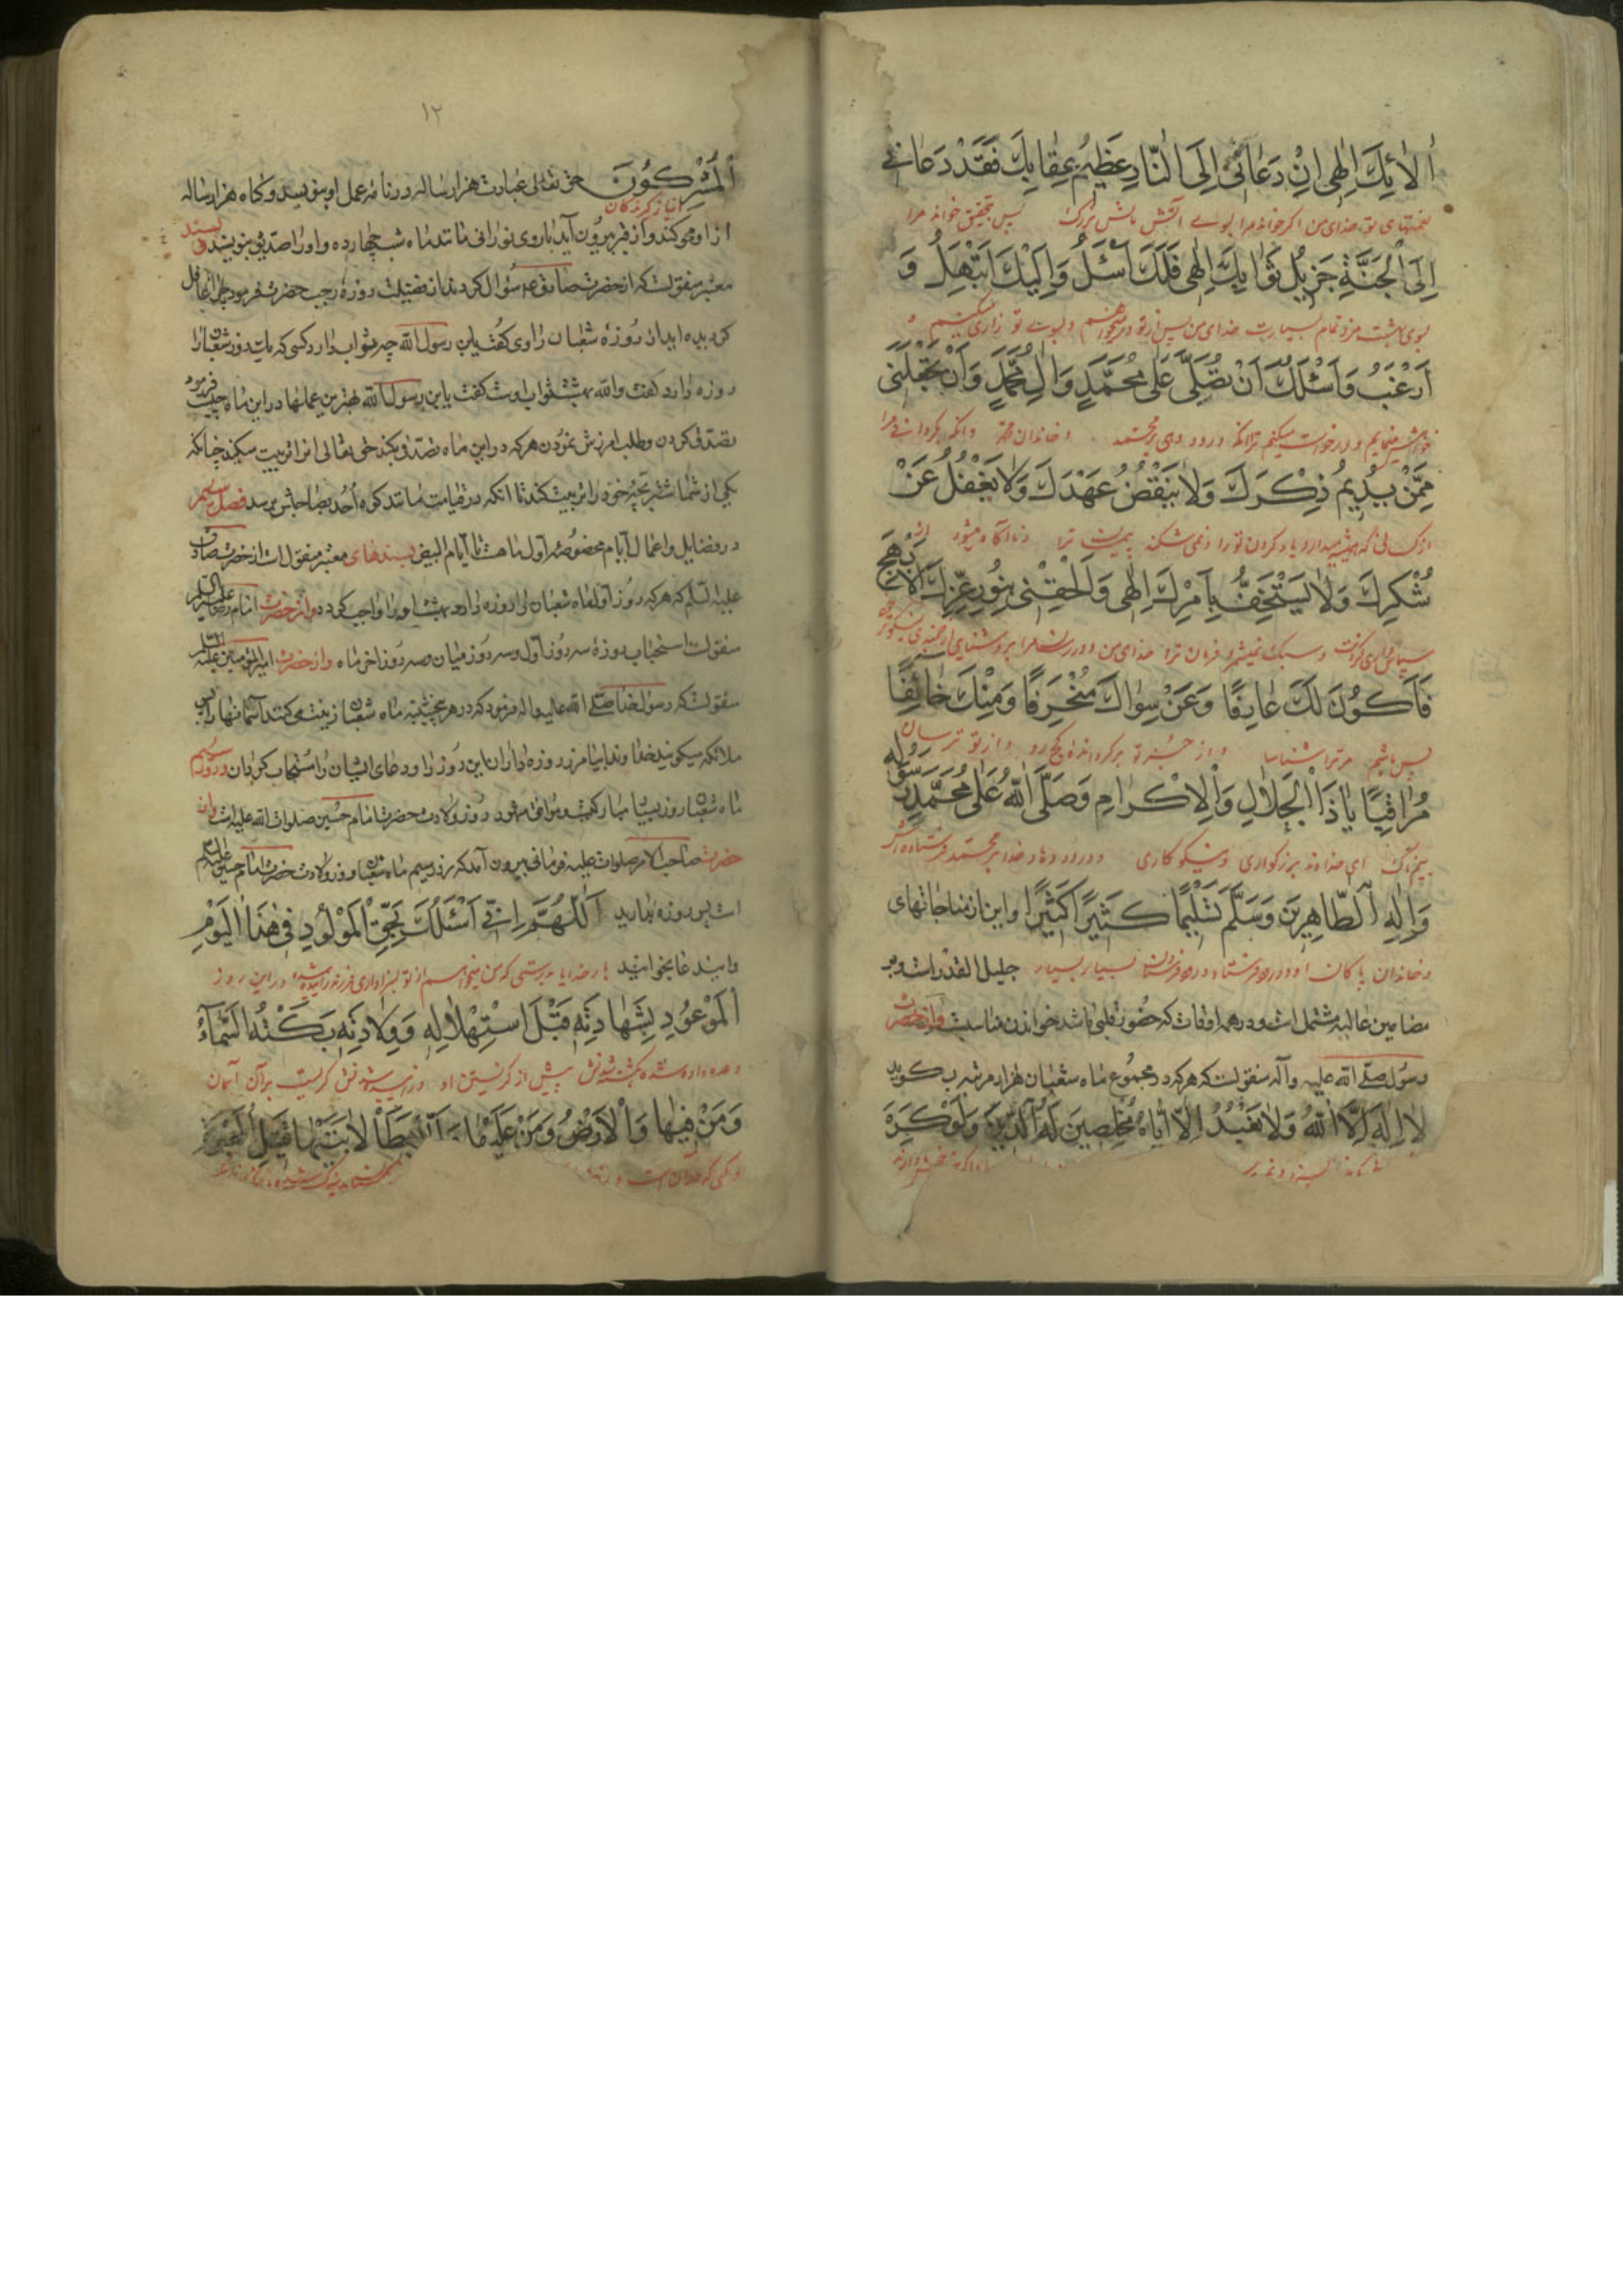 اٰلائِكَ اِلٰهی اِنْ دَعانی اِلَی النّارِ عَظیمُ عِقابِكَ فَقَدْ دَعانی
نعمتهای تو خدای من اگر خواند مرا بسوی آتش پس بتحقیق خواند مرا
اِلَی الْجَنَّةِ جَزیلُ ثَوابِكَ اِلٰهی فَلَكَ اَسْئَلُ وَ اِلَیْكَ اَبْتَهِلُ وَ
بسوی بهشت مزد تمام بسیارت خدای من پس از تو درمیخواهم و بسوی تو زاری میکنم و
اَرْغَبُ وَ اَسْئَلُكَ اَنْ تُصَلِّیَ عَلٰی مُحَمَّدٍ وَ الِ مُحَمَّدٍ وَ اَنْ تَجْعَلَنی
خواهش مینمایم و درخواست میکنم ترا آنکه درود دهی بر محمد و خاندان محمد و آنکه بگردانی مرا
مِمَّنْ یُدیمُ ذِکْرَكَ وَ لا یَنْقُضُ عَهْدَكَ وَ لا یَغْفُلُ عَنْ
از کسانی که همیشه میدارد یاد کردن تو را و نمی شکند ترا
شُکْرِكَ وَ لا یَسْتَخِفُّ بِاَمْرِكَ اِلٰهی وَ اَلْحِقْنی بِنُورِ عِزِّكَ الْاَبْهَجِ
و سبك نمیشمرد فرمان ترا خدای من و در رسان مرا بروشنایی ارجمندی
فَاَکُونَ لَكَ عارِفًا وَ عَنْ سِواكَ مُنْحَرِفًا وَ مِنْكَ خائِفًا
پس باشم مر ترا شناسا و از جز تو برگردانده رو و از تو ترسان
مُراقِبًا یا ذَا الْجَلالِ وَ الْاِکْرامِ وَ صَلَّی اللّٰهُ عَلٰی مُحَمَّدٍ رَسُولِهِ
بیمناك ای خداوند بزرگواری و نیکوکاری و درود دهاد خدا بر محمد فرستاده اش
وَ الِهِ الطّاهِرینَ وَ سَلَّمَ تَسْلیمًا کَثیرًا کَثیرًا و این از مناجاتهای
و خاندان پاکان او بسیار بسیار جلیل القدر است و بر
مضامین عالیه مشتمل است و در همه اوقات که حضور قلبی باشد خواندن مناسبت و از حضرت
رسول صلی الله علیه و آله منقولست که هر که در مجموع ماه شعبان هزار مرتبه بگوید
لا اِلٰهَ اِلَّا اللّٰهُ وَ لا نَعْبُدُ اِلّا اِیّاهُ مُخْلِصینَ لَهُ الدّینَ وَ لَوْ کَرِهَ
۱۲
الْمُشْرِکُونَ حق تعالی عبادت هزار ساله در نامه عمل او بنویسد و گناه هزار ساله
انباز کنندگان
از او محو کند و از قبر بیرون آید با روی نورانی مانند ماه شب چهارده و او را صدیق بنویسند و بسند
معتبر منقولست که از حضرت صادق ع سؤال کردند از فضیلت روزه رجب حضرت فرمود چرا غافل
گردیده اید از روزه شعبان راوی گفت یابن رسول الله چه ثواب دارد کسی که یك روز شعبان را
روزه دارد گفت والله بهشت ثواب اوست گفت یابن رسول الله بهترین عملها در این ماه چیست فرمود
تصدق کردن و طلب آمرزش نمودن هر که در این ماه تصدق بکند حق تعالی آنرا تربیت میکند چنانکه
یکی از شما شتر بچه خود را تربیت کند تا آنکه در قیامت مانند کوه احد بصاحبش برسد فصل سیم
در فضایل و اعمال ایام مخصوصه اول ماه است تا ایام البیض بسندهای معتبر منقول است از حضرت صادق
علیه السلم که هر که روز اول ماه شعبان را روزه دارد بهشت او را واجب گردد و از حضرت امام رضا علیه السلم
منقولست استحباب روزه سه روز اول و سه روز میان و سه روز آخر ماه و از حضرت امیرالمؤمنین علیه السلم
منقولست که رسول خدا صلی الله علیه و اله فرمود که در هر پنجشنبه ماه شعبان زینت می کنند آسمانها را پس
ملائکه میگویند خداوندا بیامرز روزه داران این روز را و دعای ایشان را مستجاب گردان و روز سیم
ماه شعبان روز بسیار مبارکیست و موافق مشهور روز ولادت حضرت امام حسین صلوات الله علیه است و از
حضرت صاحب الامر صلوات الله علیه فرمانی بیرون آمد که روز سیم ماه شعبان روز ولادت حضرت امام حسین علیه السلم
است پس روزه بدارید اَللّٰهُمَّ اِنّی اَسْئَلُكَ بِحَقِّ الْمَوْلُودِ فی هٰذَا الْیَوْمِ
و این دعا بخوانید بار خدایا بدرستی که من میخواهم از تو بسزاواری فرزند زائیده شده در این روز
الْمَوْعُودِ بِشَهادَتِهِ قَبْلَ اسْتِهْلالِهِ وَ وِلادَتِهِ بَکَتْهُ السَّماءُ
وعده داده شده بکشته شدنش پیش از گریستن او و زائیده شدنش گریست بر آن آسمان
وَ مَنْ فیها وَ الْاَرْضُ وَ مَنْ عَلَیْها وَ لَمّا یَطَأْ لابَتَیْها قَتیلِ الْعَبْرَةِ
و کسی که در آن است و